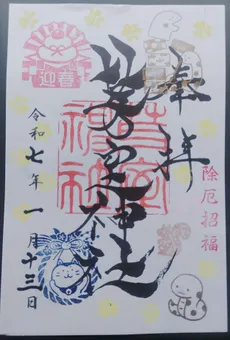 奉拝
除厄招福
神社
迎春
令和七年一月十三日